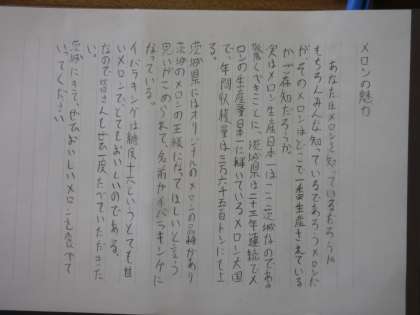 メロンの魅力
あなたはメロンを知っているだろうか
もちろんみんな知っているであろうメロンだ
がそのメロンはどこで一番生産されている
かご存知だろうか。
実はメロン生産日本一はここ茨城なのである。
驚くべきことに、茨城県は二十三年連続でメ
ロンの生産量日本一に輝いているメロン大国
で、年間収穫量は三万六千五百トンにも上
る。
茨城県にはオリジナルのメロンの品種があり
茨城のメロンの王様になってほしいという
思いがこめられて、名前がイバラキングに
なっている。
イバラキングは糖度十六というとても甘
いメロンで、とてもおいしいのである。
なので皆さんも ぜひ一度たべていただきた
い。
茨城にきて、ぜひおいしいメロンを食べて
いってください。